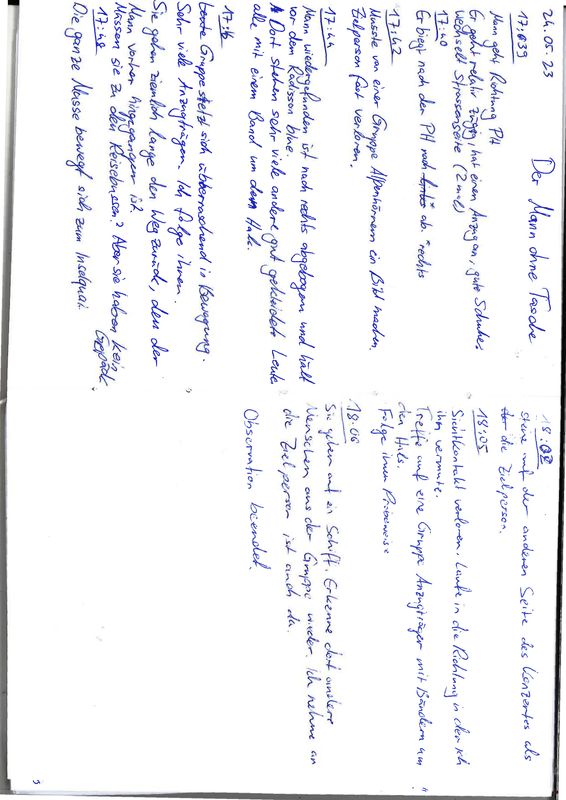 24.05.23
Der Mann ohne Tasche
17:039
Mann geht Richtung PH
Er geht relativ zügig, hat einen Anzug an, gute Schuhe
wechselt Strassenseite (2 mal)
17:40
Er biegt nach dem PH nach links ab. *rechts
17:42
Musste von einer Gruppe Alpenhörnern ein Bild machen.
Zielperson fast verloren.
17:44
Mann wiedergefunden ist nach rechts abgebogen und hält
vor dem Radisson blue.
Dort stehen sehr viele andere gut gekleidete Leute
alle mit einem Band um dem Hals.
17:46
Leute Gruppe setzt sich überraschend in Bewegung.
Sehr viele Anzugträger. Ich folge ihnen.
Sie gehen ziemlich lange den Weg zurück, den der
Mann vorhin hingegangen ist.
Müssen sie zu den Reisebussen? Aber sie haben kein
Gepäck
17:48
Die ganze Masse bewegt sich zum Inseliquai
18:02
stehe auf der anderen Seite des Konzertes als
der die Zielperson.
18:05
Sichtkontakt verloren. Laufe in die Richtung in der ich
ihn vermute.
Treffe auf eine Gruppe Anzugträger mit Bändern um
den Hals.
Folge ihnen
18:06
Sie gehen auf ein Schiff. Erkenne dort andere
Menschen aus der Gruppe wieder. Ich nehme an
die Zielperson ist auch da.
Observation beendet.